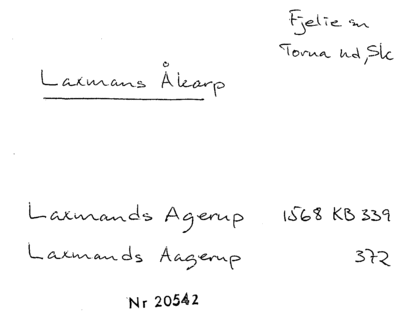 Fjelie sn
Torna hd, Sk
Laxmans Åkarp
Laxmands Agerup 1568 KB 339
Laxmands Aagerup 372
Nr 20542